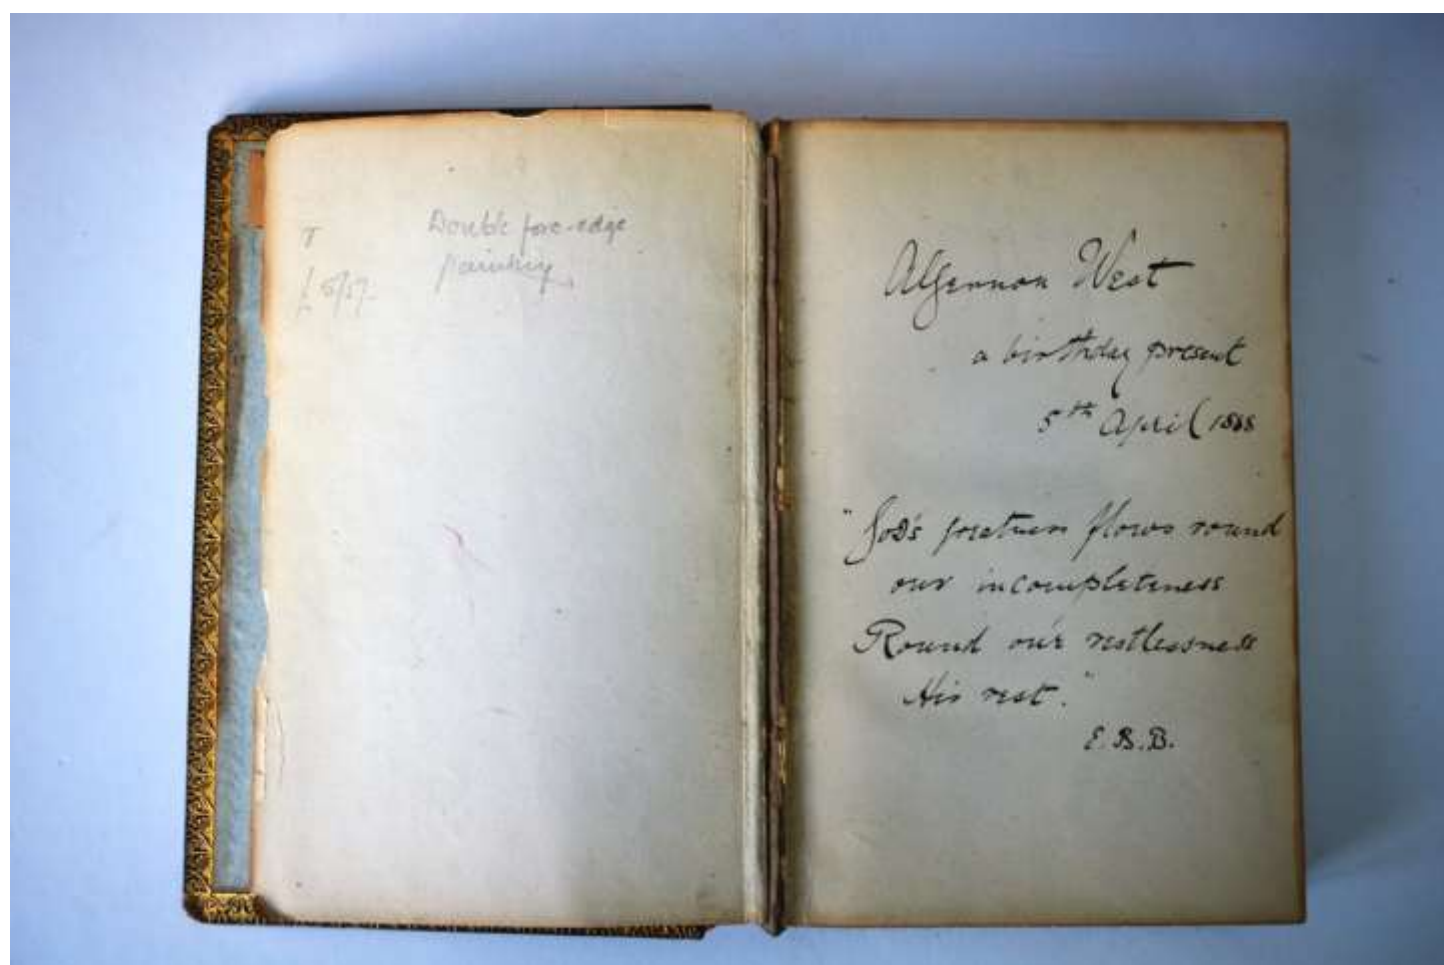 Double fore-edge
painting
T
Algernon West
a birthday present
5th April 1888
"God's greatness flows round
our incompleteness
Round our restlessness
His rest."
E.B.B.